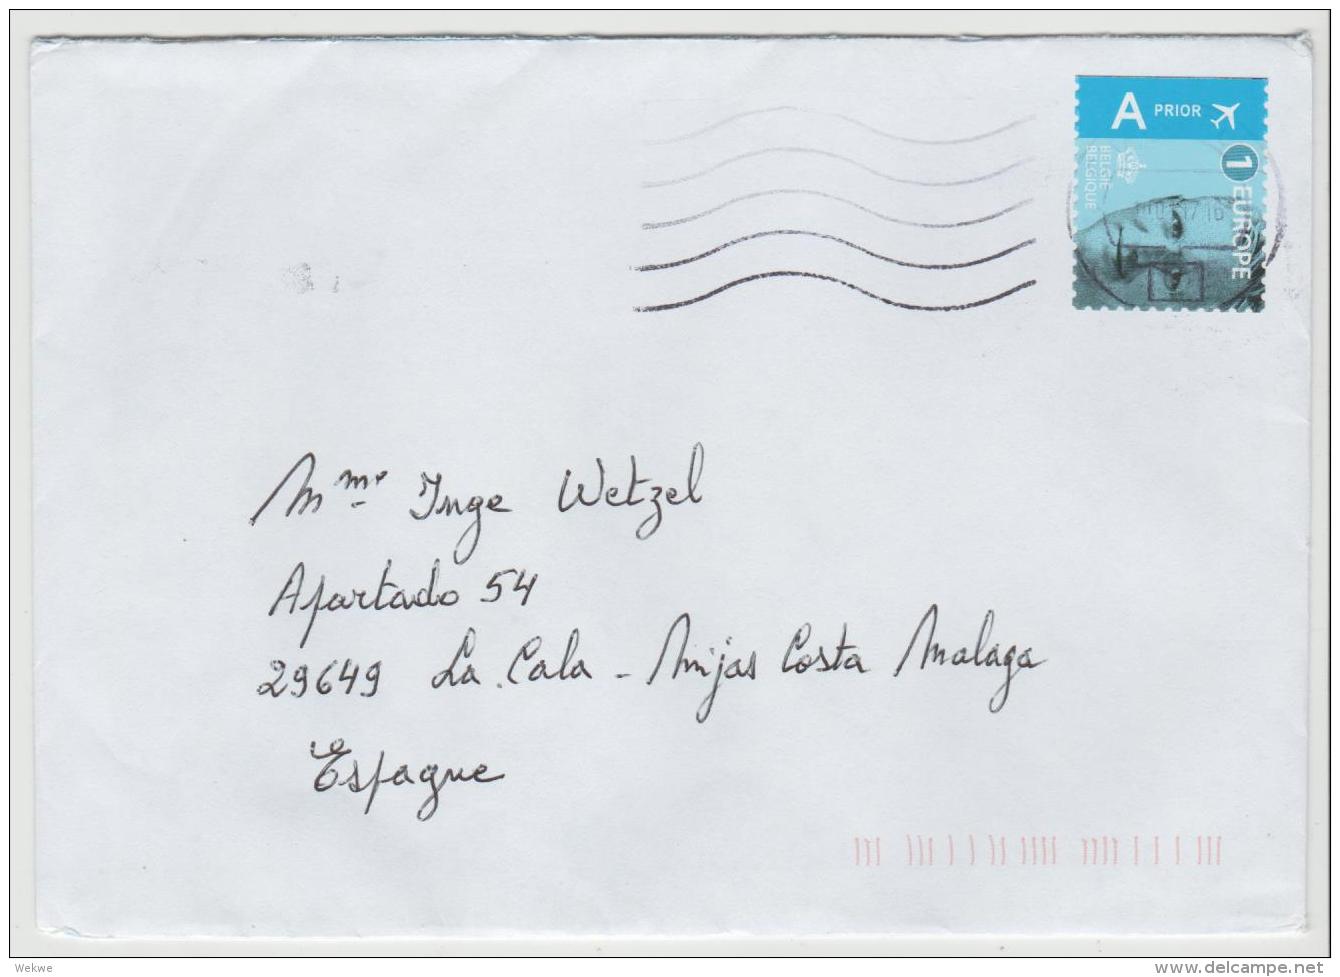 A PRIOR
1 EUROPE
BELGIE
BELGIQUE
Mme Inge Wetzel
Apartado 54
29649 La Cala - Mijas Costa Malaga
Espagne
Wekwe
www.delcampe.net